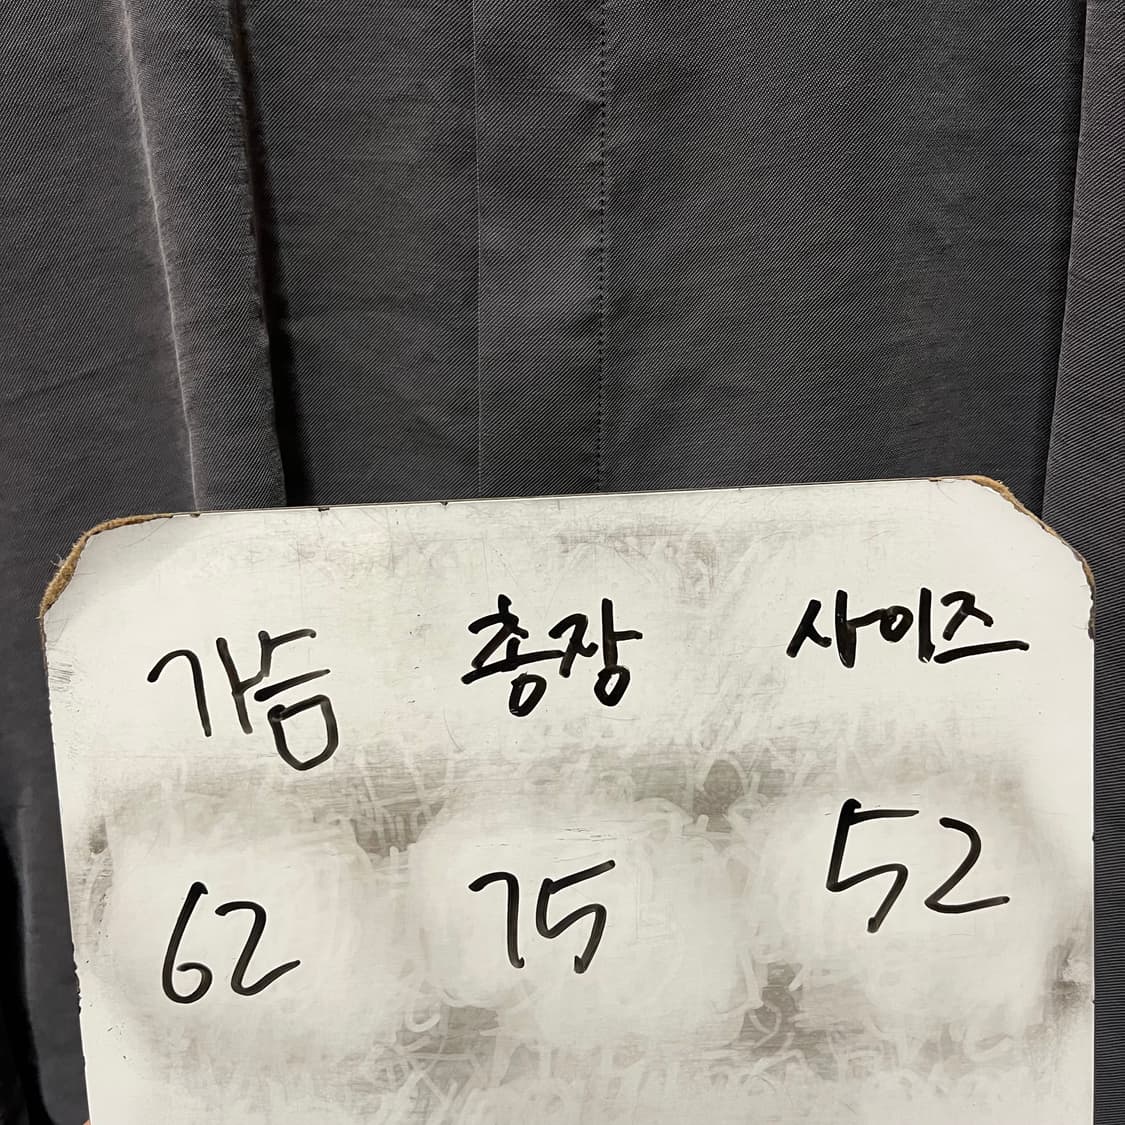 가슴 총장 사이즈
62 75 52